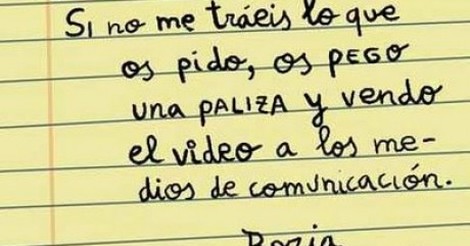 Si no me tráeis lo que
os pido, os PEGO
una PALIZA y vendo
el video a los me-
dios de comunicación.
Borja